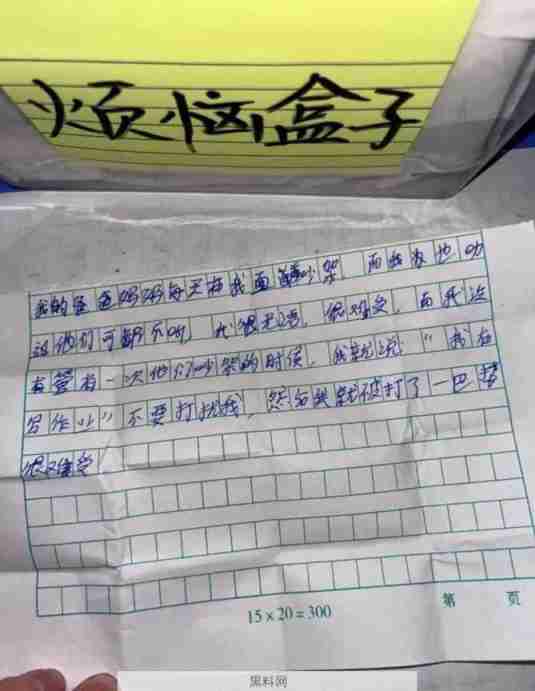 烦恼盒子
我的爸爸妈妈每天在我面前吵架 而我为他劝
说他们可都不听 我很无语,很难受,而我没
有管有一次他们吵架的时候,我就说“我在
写作业”不要打扰我,然后我就被打了一巴掌
很难受
15×20=300
第 页
黑料网